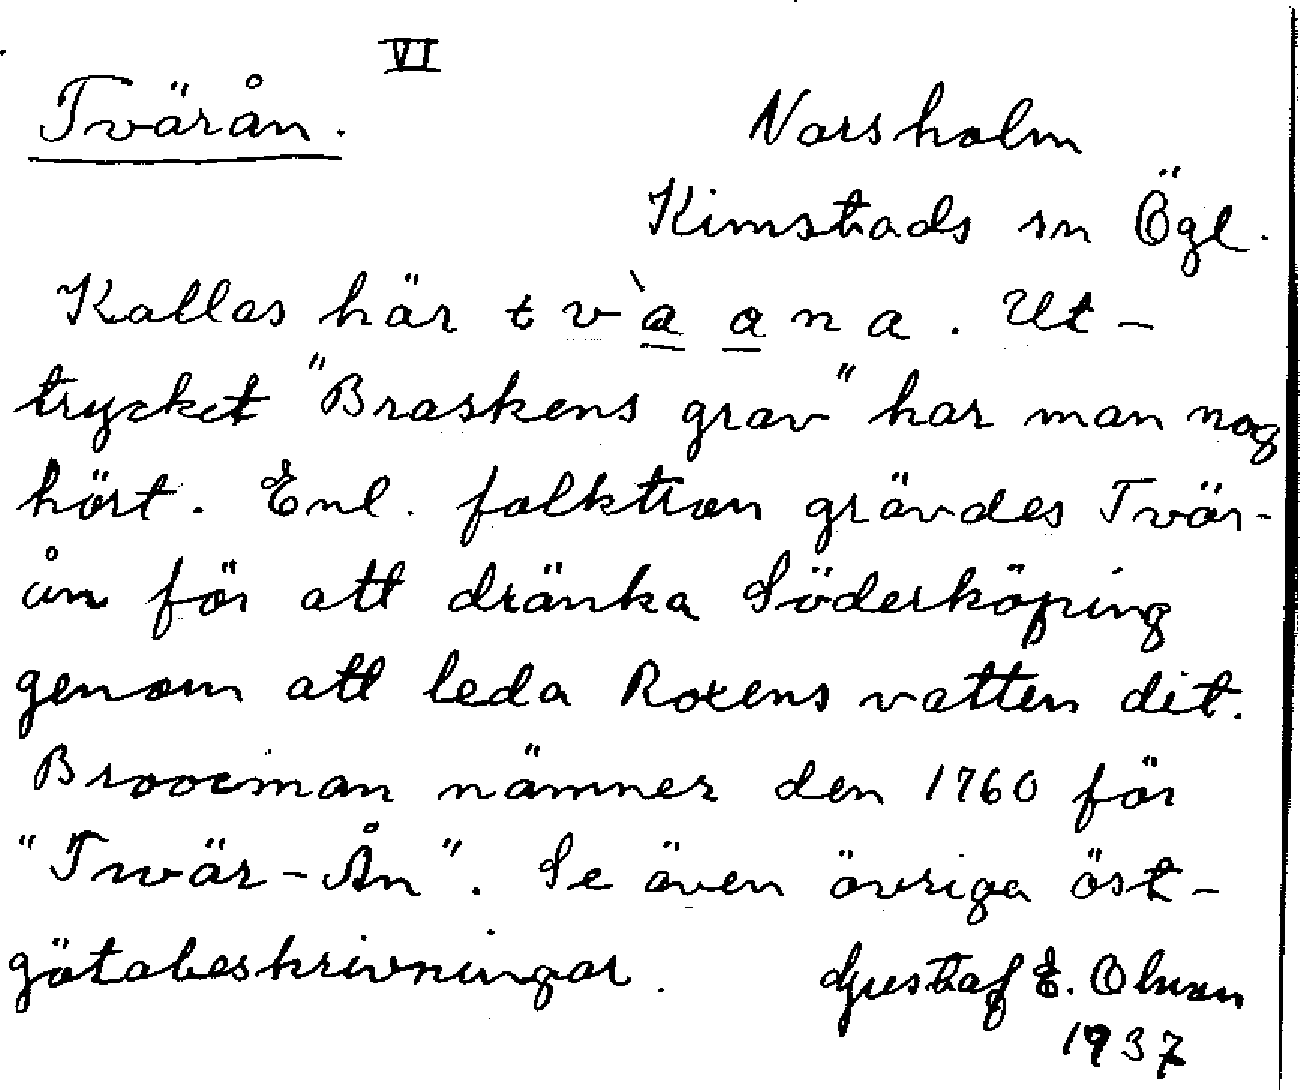 VI
Tvärån.
Norsholm
Kimstads sn Ögl.
Kallas här t v à a n a. Ut-
trycket "Braskens grav" har man nog
hört. Enl. folktron grävdes Tvär-
ån för att dränka Söderköping
genom att leda Roxens vatten dit.
Broocman nämner den 1760 för
"Twär-Ån". Se även övriga öst-
götabeskrivningar.
Gustaf E. Olsson
1937